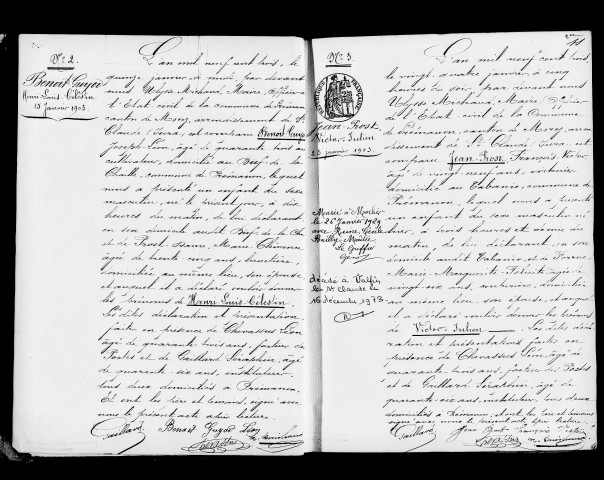 N° 2.
Benoit Guyod
Henri Louis Célestin
15 Janvier 1903.
L'an mil neuf cent trois, le
quinze janvier, à midi, par devant
nous Ulysse Michaud, Maire, Officier de
l'Etat civil de la commune de Prémanon
canton de Morez, arrondissement de St
Claude (Jura), est comparu Benoit Guyod
Joseph Léon, âgé de quarante trois ans,
cultivateur, domicilié au Bief de la
Chaille, commune de Prémanon, lequel
nous a présenté un enfant du sexe
masculin, né le présent jour, à dix
heures du matin, de lui déclarant
en son domicile audit Bief de la Chaille
et de Prost Marie Clémence
âgée de trente cinq ans,
domiciliée au même lieu, son épouse,
et auquel il a déclaré vouloir donner
les prénoms de Henri Louis Célestin.
Les dites déclaration et présentation
faites en présence de Chavassus Léon,
âgé de quarante trois ans, facteur des
Postes et de Gaillard Séraphin, âgé
de quarante-six ans, instituteur,
tous deux domiciliés à Prémanon.
Et ont les père et témoins, signé avec
nous le présent acte après lecture.
Gaillard Benoit Guyod Léon
N° 3.
Jean-Prost
Victor Julien
25 janvier 1903.
Marié à Morbier
le 26 Janvier 1929
avec Reine Cécile
Bailly-
Le Greffier
décédé à Valfin
les St Claude le
16 Décembre 1973.
L'an mil neuf cent trois,
le vingt quatre janvier, à cinq
heures du soir, par devant nous
Ulysse Michaud, Maire, Officier
de l'Etat civil de la Commune
de Prémanon, canton de Morez, arron
dissement de St Claude, Jura, est
comparu Jean-Prost François Victor
âgé de vingt neuf ans, voiturier
domicilié au Tabanio, commune de
Prémanon, lequel nous a présenté
un enfant du sexe masculin né
à trois heures et demie du
matin, de lui déclarant, en son
domicile audit Tabanio, et de
Marie Marguerite âgée de
vingt-six ans, domiciliée
au même lieu, son épouse, et auquel
il a déclaré vouloir donner les prénoms
de Victor-Julien. Les dites décla
ration et présentation faites en
présence de Chavassus Léon, âgé de
quarante trois ans, facteur des Postes
et de Gaillard Séraphin, âgé de
quarante-six ans, instituteur, tous deux
domiciliés à Prémanon, et ont les père et témoins
signé avec nous le présent acte après lecture.
Gaillard Jean Prost François Victor